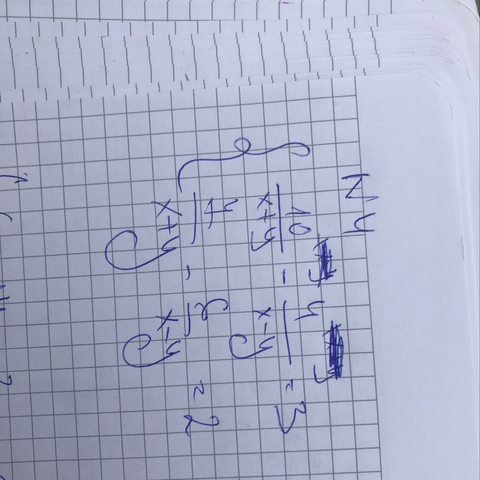 N 4
10/x+y - 4/x-y = 3
x+y - x-y = 2